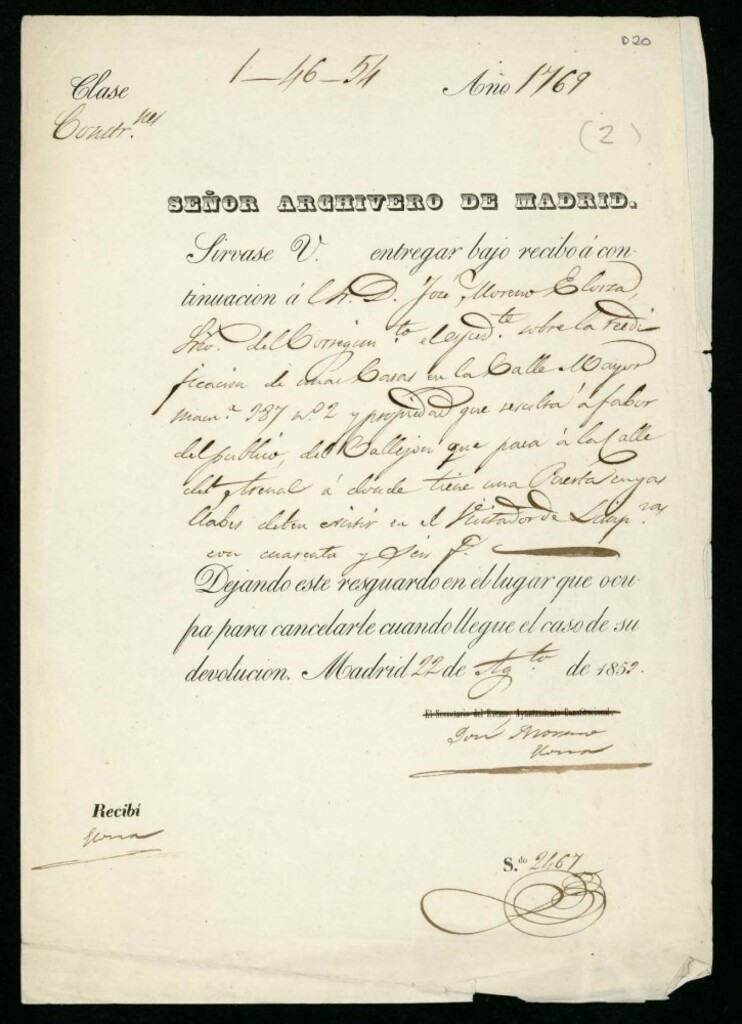 D20
1-46-54
Clase
Año 1769
Constr.nes
(2)
SEÑOR ARCHIVERO DE MADRID.
Sirvase V. entregar bajo recibo á con-
tinuacion á l Sr. D. José Moreno Elorza,
Srio. del Corregim.to el esped.te sobre la reedi
ficacion de unas Casas en la Calle Mayor
manz.a 387 n.º 2 y propiedad que resulta á fabor
del publico, del Callejon que pasa á la Calle
del Arenal á donde tiene una Puerta cuyas
llabes deben existir en el Visitador de Limp.zas
con cuarenta y seis f.s
Dejando este resguardo en el lugar que ocu-
pa para cancelarle cuando llegue el caso de su
devolucion. Madrid 22 de Ag.to de 1852.
El Secretario del Excmo. Ayuntamiento Constitucional.
José Moreno
Elorza
Recibí
Elorza
S.do 2467